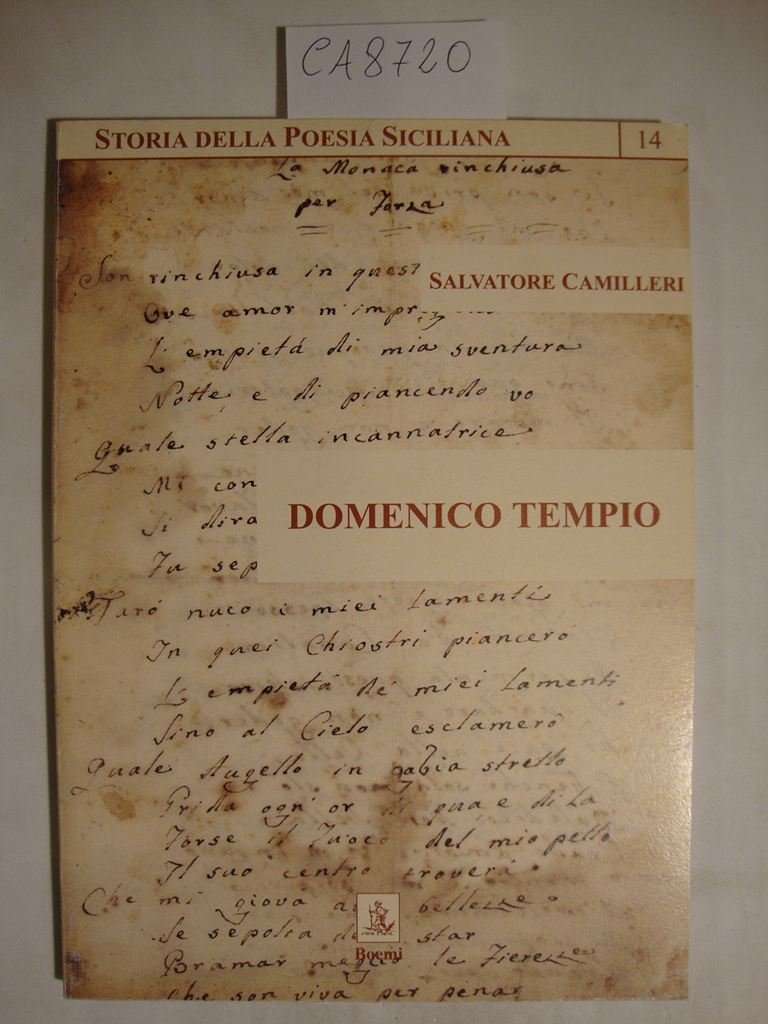 CA8720
STORIA DELLA POESIA SICILIANA 14
La Monaca rinchiusa
per Forza
Son rinchiusa in quest
SALVATORE CAMILLERI
Ove amor m'impr
L'empietá di mia sventura
Notte, e di piancendo vo
Quale stella incannatrice
Mi con
DOMENICO TEMPIO
Si dira
Fu sep
Faró nuco i miei lamenti
In quei Chiostri pianceró
L'empietá de miei lamenti
Sino al Cielo esclameró
Quale Augello in gabia stretto
Grida ogn'or di qua e di La
Forse il Fuoco del mio petto
Il suo centro troverá
Che mi giova bellezze
Se sepolta star
Boemi
Bramar meglio le Fierezze
Che son viva per penar